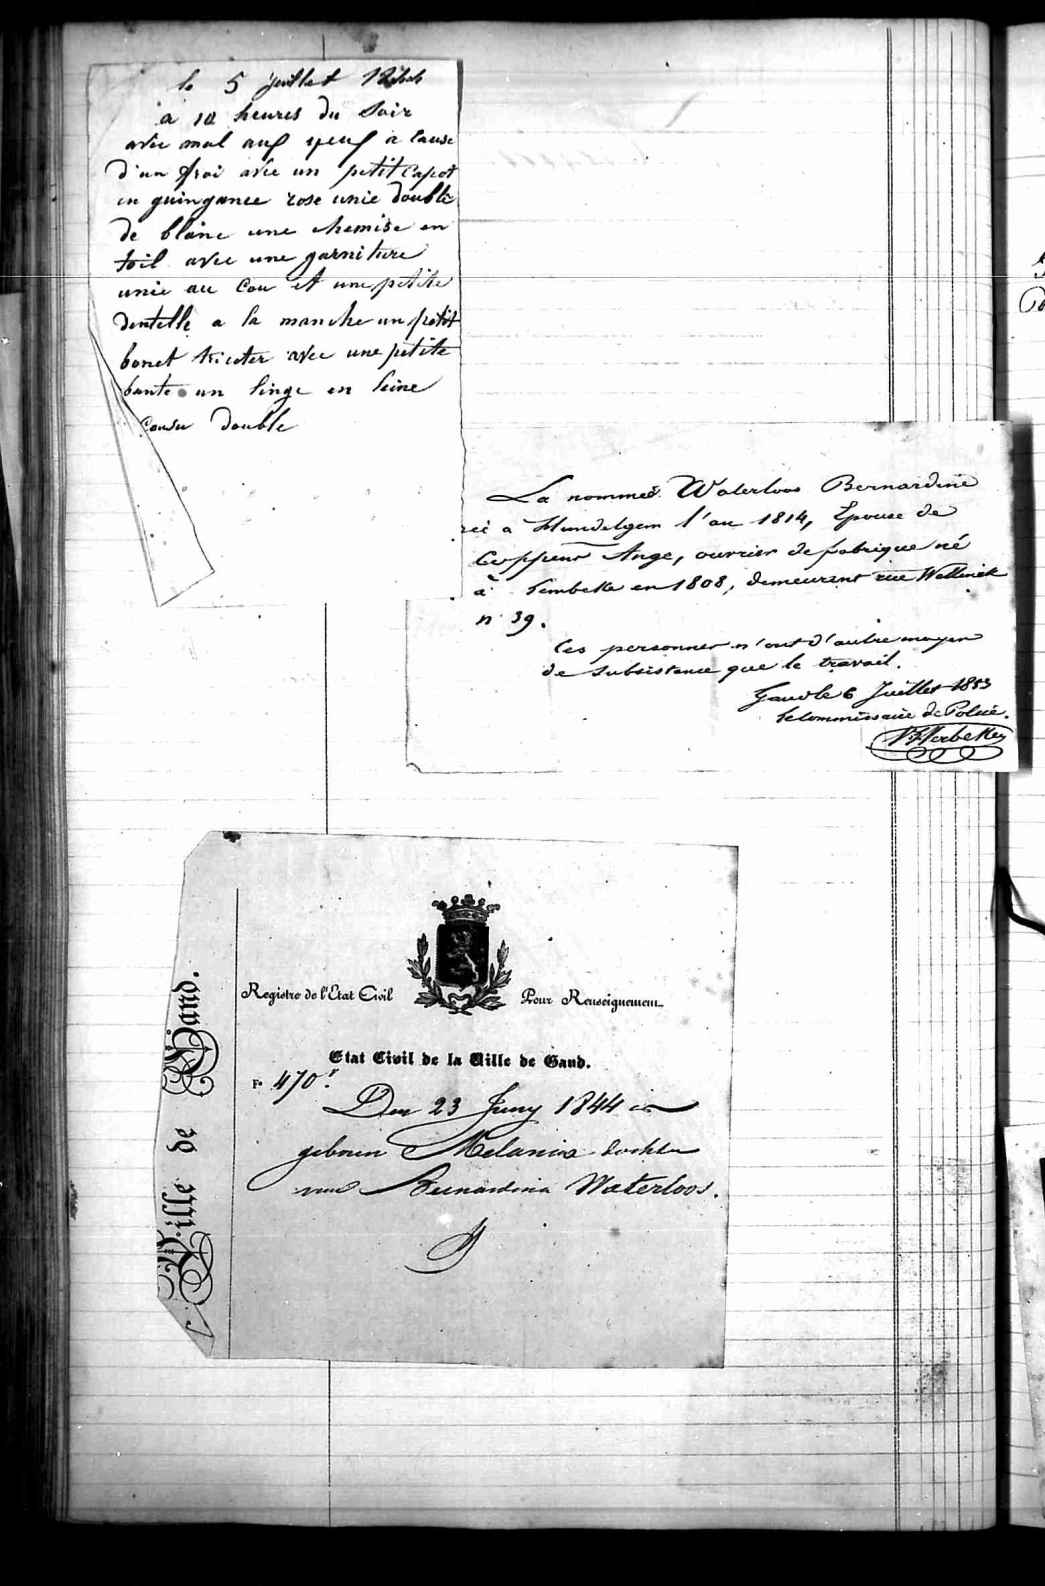 le 5 juillet 1844
à 10 heures du soir
avec mal aux yeux a cause
d'un froi avec un petit capot
en guingance rose unie double
de blanc une chemise en
toil avec une garniture
unie au cou et une petite
dentelle a la manche un petit
bonet tricoter avec une petite
bante un linge en leine
cousu double
La nommeé Waterloos Bernardine
née a Hundelgem l'an 1814, Epouse de
Coppens Ange, ouvrier de fabrique né
à Lembeke en 1808, demeurant rue
n° 39.
Ces personnes n'ont d'autre moyen
de subsistance que le travail.
Gand le 6 Juillet 1853
le Commissaire de Police.
Registre de l'Etat Civil Pour Renseignement
Etat Civil de la Ville de Gand.
F° 470
Den 23 Juny 1844 is
geboren Melanie dochter
van Bernardina Waterloos.
Ville de Gand.